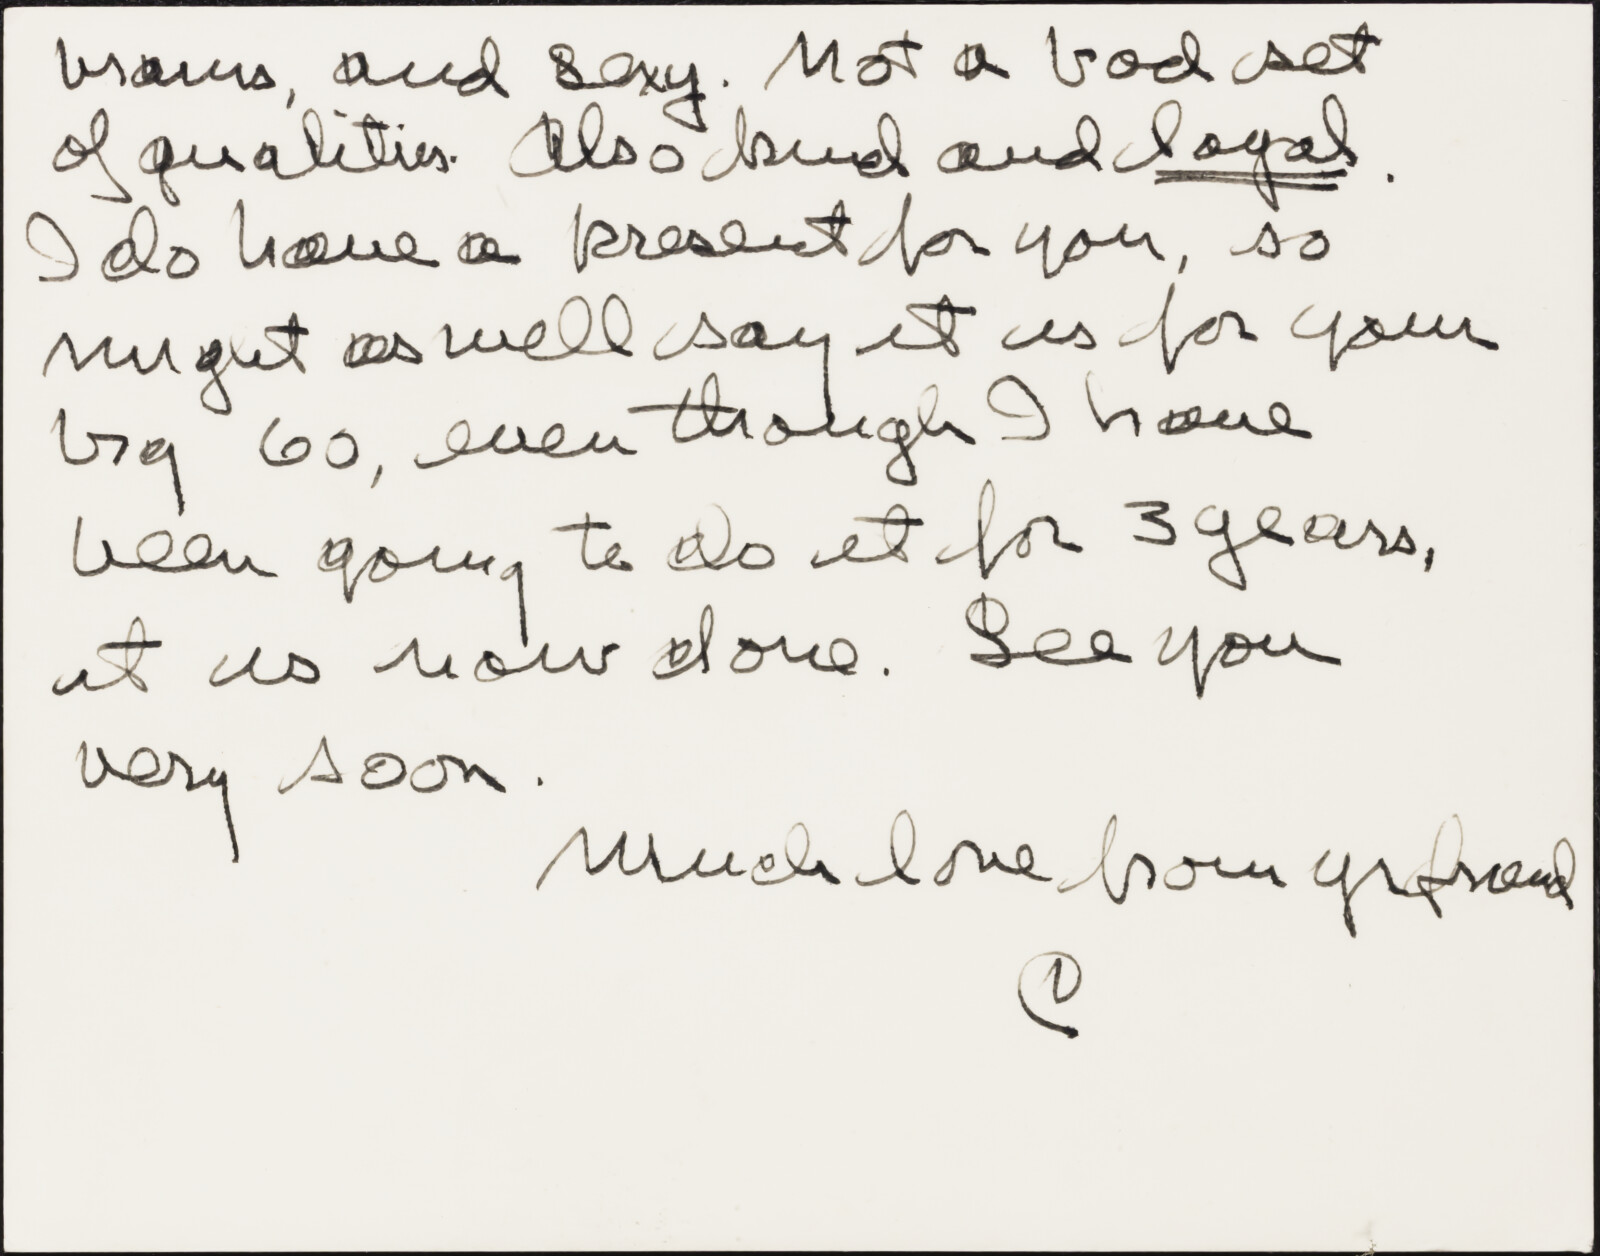 brains, and sexy. Not a bad set
of qualities. Also kind and loyal.
I do have a present for you, so
might as well say it is for your
big 60, even though I have
been going to do it for 3 years,
it is now done. See you
very soon.
Much love from yr friend
C